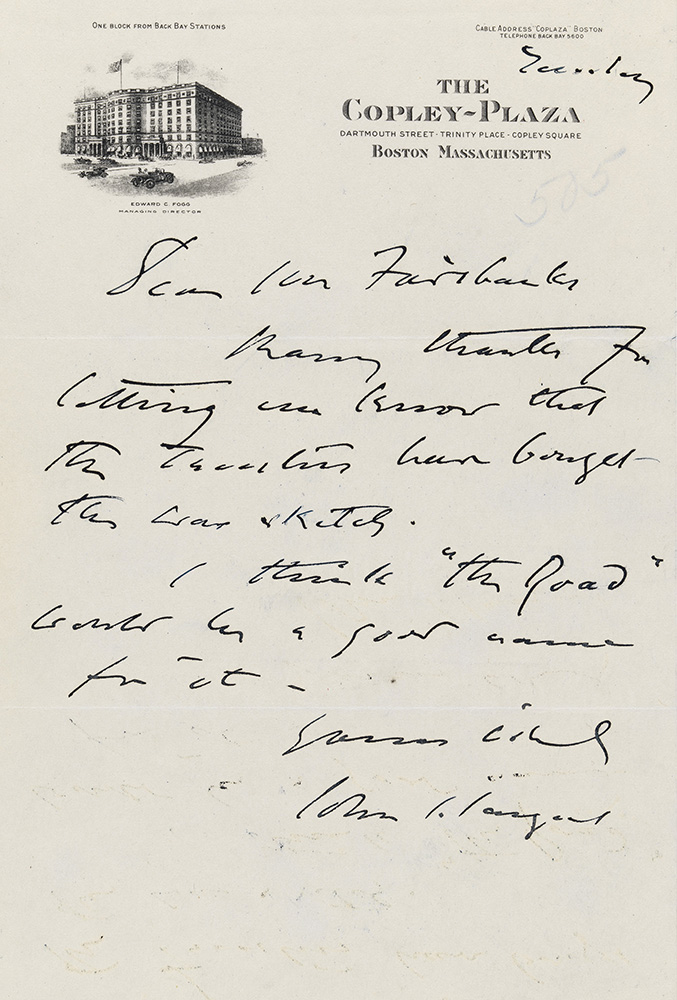 ONE BLOCK FROM BACK BAY STATIONS
CABLE ADDRESS "COPLAZA" BOSTON
TELEPHONE BACK BAY 5600
Tuesday
THE
COPLEY-PLAZA
DARTMOUTH STREET - TRINITY PLACE - COPLEY SQUARE
BOSTON MASSACHUSETTS
EDWARD C. FOGG
MANAGING DIRECTOR
505
Dear Mr Fairbanks
Many thanks for
letting me know that
the Trustees have bought
the war sketch.
I think "the Road"
would be a good name
for it -
Yours
John S. Sargent